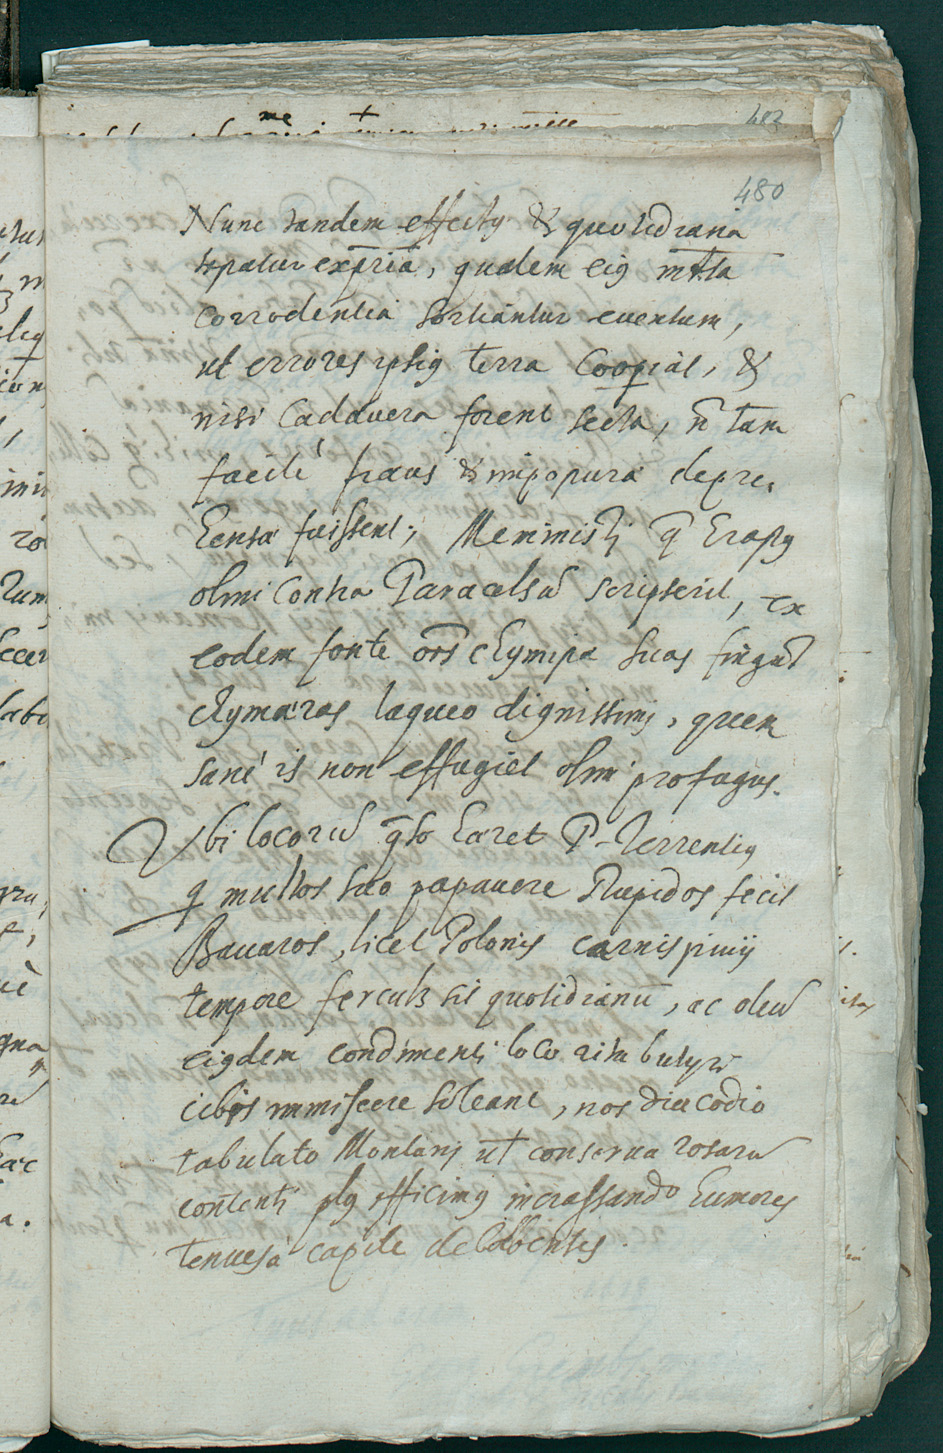 480
Nunc tandem effectus & quotidiana
exp̄ria, qualem eius
Corrodentia sortiantur euentum,
ut errores ipsius terra Cooperiat, &
nisi Cadauera forent secta, ñ tam
facilè fraus & depre,
hensa fuissent; Meministi
olim Contra Paracelsū scripserit, ex
eodem fonte oēs suas fingūt
chymæras laqueo dignissimi, quem
sanè is non effugiet olim profugus.
Vbi locorū q̄so haret P. Terrentius
q multos suo papauere stupidos fecit
Bauaros, licet Polonis carnispriuij
tempore ferculū sit quotidianū, ac oleū
eiusdem condimenti loco butyri
cibis immiscere soleant, nos diacodio
tabulato Montani ut conserua rosarū
contenti plus efficimus incrassando humores
tenues à capite